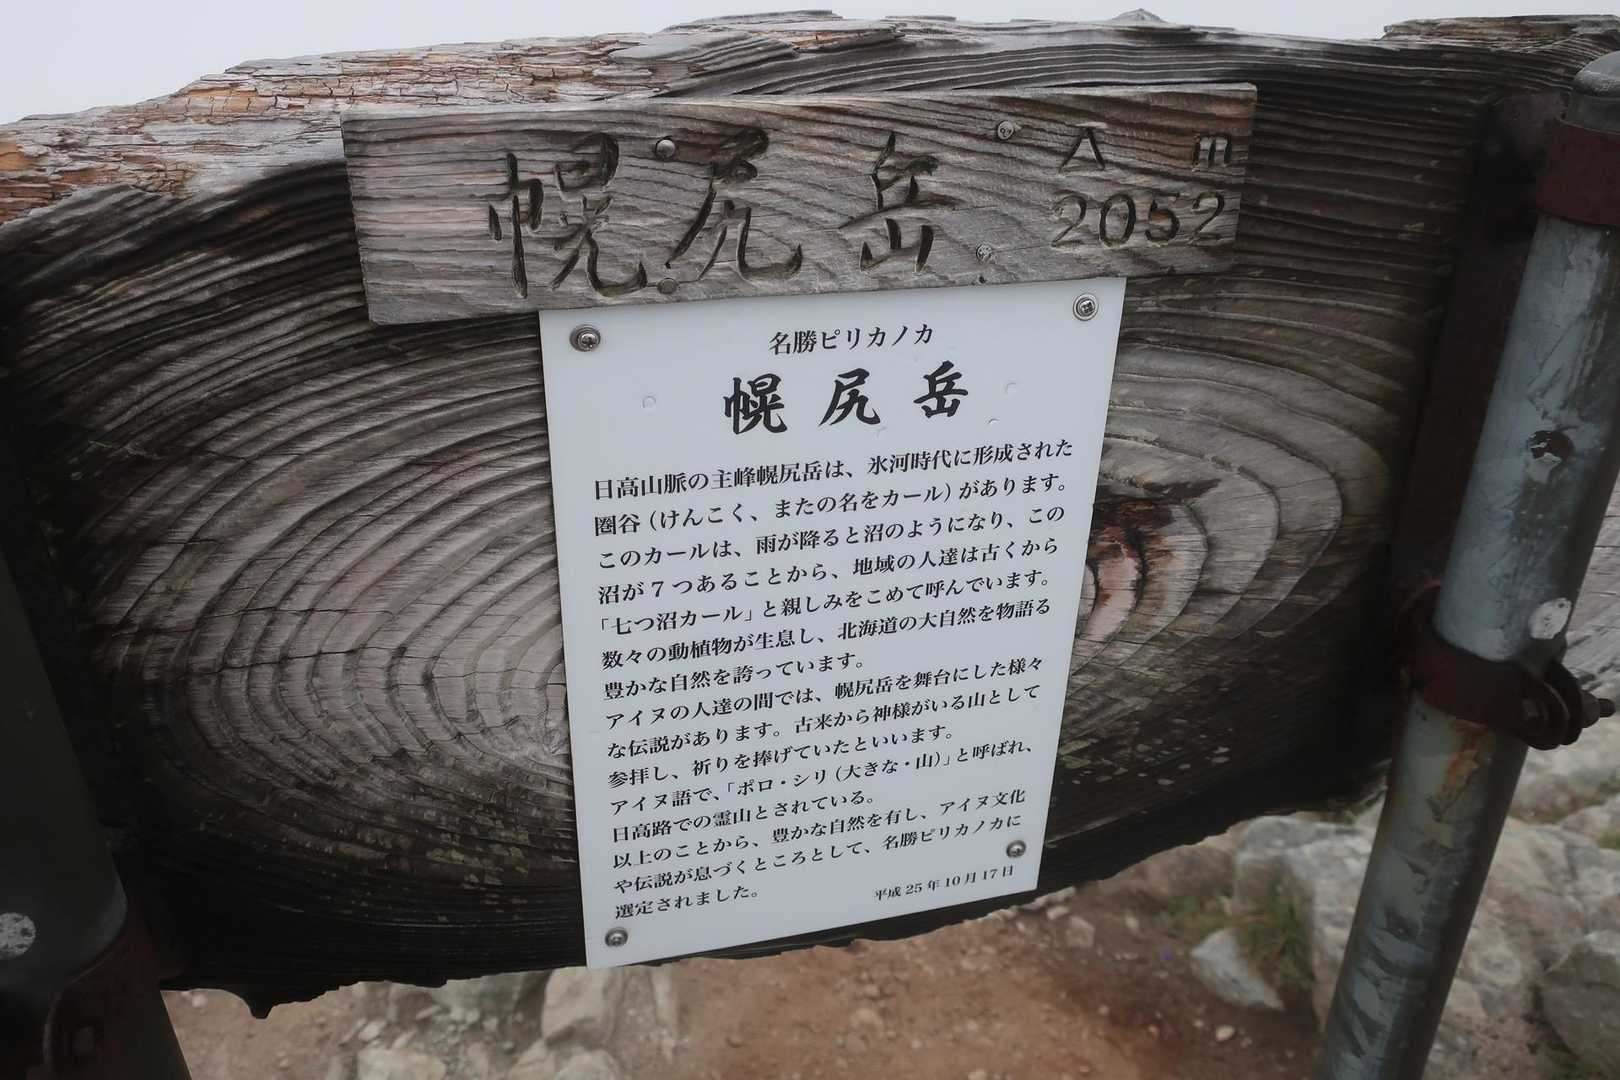 幌尻岳
A m
2052
名勝ピリカノカ
幌尻岳
日高山脈の主峰幌尻岳は、氷河時代に形成された
圏谷（けんこく、またの名をカール）があります。
このカールは、雨が降ると沼のようになり、この
沼が７つあることから、地域の人達は古くから
「七つ沼カール」と親しみをこめて呼んでいます。
数々の動植物が生息し、北海道の大自然を物語る
豊かな自然を誇っています。
アイヌの人達の間では、幌尻岳を舞台にした様々
な伝説があります。古来から神様がいる山として
参拝し、祈りを捧げていたといいます。
アイヌ語で、「ポロ・シリ（大きな・山）」と呼ばれ、
日高路での霊山とされている。
以上のことから、豊かな自然を有し、アイヌ文化
や伝説が息づくところとして、名勝ピリカノカに
選定されました。
平成25年10月17日